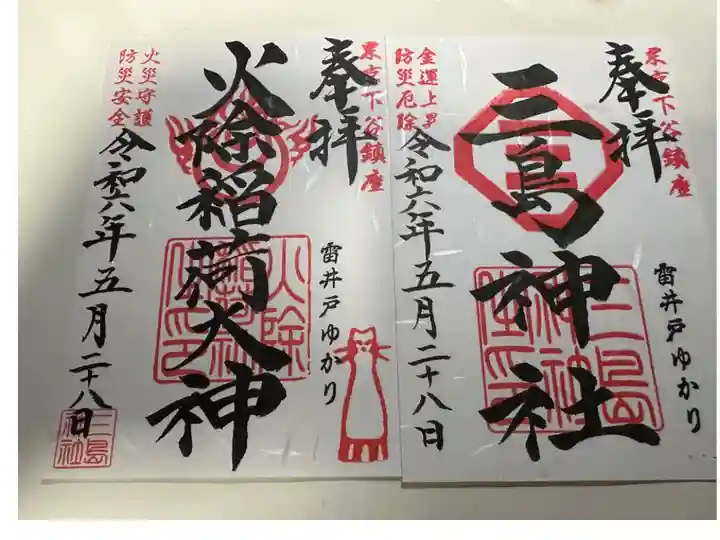 東京下谷鎮座
奉拝
三島神社
三島
神社
雷井戸ゆかり
金運上昇
防災厄除
令和六年五月二十八日
東京下谷鎮座
奉拝
火除稲荷大神
火除
稲荷社
雷井戸ゆかり
火災守護
防災安全
令和六年五月二十八日
三島
神社